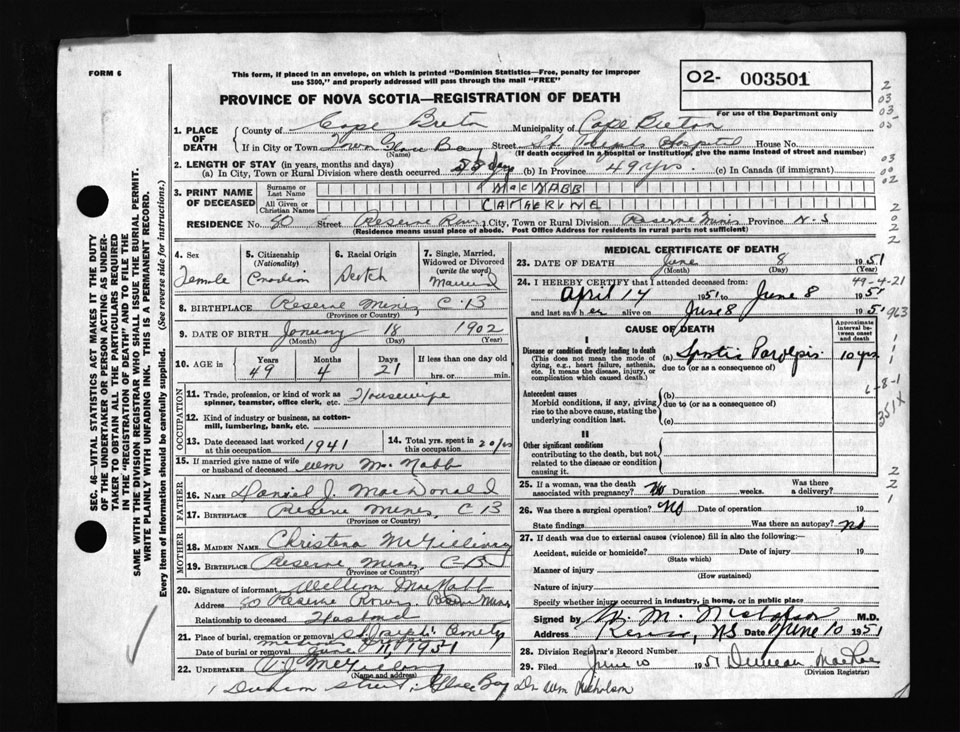 FORM 6
This form, if placed in an envelope, on which is printed "Dominion Statistics—Free, penalty for improper
use $300," and properly addressed will pass through the mail "FREE"
O2- 003501
For use of the Department only
PROVINCE OF NOVA SCOTIA—REGISTRATION OF DEATH
SEC. 46—VITAL STATISTICS ACT MAKES IT THE DUTY
OF THE UNDERTAKER OR PERSON ACTING AS UNDER-
TAKER TO OBTAIN ALL THE PARTICULARS REQUIRED
IN THE "REGISTRATION OF DEATH" AND TO FILE THE
SAME WITH THE DIVISION REGISTRAR WHO SHALL ISSUE THE BURIAL PERMIT.
WRITE PLAINLY WITH UNFADING INK. THIS IS A PERMANENT RECORD.
Every item of information should be carefully supplied. (See reverse side for instructions.)
1. PLACE OF DEATH
County of Cape Breton Municipality of Cape Breton
If in City or Town Town Glace Bay Street St. Joseph's Hospital House No.
(Name) (If death occurred in a hospital or institution, give the name instead of street and number)
2. LENGTH OF STAY (in years, months and days)
(a) In City, Town or Rural Division where death occurred days (b) In Province 49 yrs. (c) In Canada (if immigrant)
3. PRINT NAME OF DECEASED
Surname or Last Name MACNABB
All Given or Christian Names CATHERINE
RESIDENCE No. 80 Street Reserve Rows City, Town or Rural Division Reserve Mines Province N-S
(Residence means usual place of abode. Post Office Address for residents in rural parts not sufficient)
4. Sex Female
5. Citizenship (Nationality) Canadian
6. Racial Origin Scotch
7. Single, Married, Widowed or Divorced (write the word) Married
8. BIRTHPLACE Reserve Mines C.B
(Province or Country)
9. DATE OF BIRTH January 18 1902
(Month) (Day) (Year)
10. AGE in Years 49 Months 4 Days 21 If less than one day old hrs. or min.
OCCUPATION
11. Trade, profession, or kind of work as spinner, teamster, office clerk, etc. Housewife
12. Kind of industry or business, as cotton-mill, lumbering, bank, etc.
13. Date deceased last worked at this occupation 1941
14. Total yrs. spent in this occupation 20 yrs
15. If married give name of wife or husband of deceased Wm McNabb
FATHER
16. Name Daniel J. MacDonald
17. Birthplace Reserve Mines, CB
(Province or Country)
MOTHER
18. MAIDEN NAME Christena McGillivray
19. BIRTHPLACE Reserve Mines, CB
(Province or Country)
20. Signature of informant William MacNabb
Address 80 Reserve Rows Reserve Mines
Relationship to deceased Husband
21. Place of burial, cremation or removal St Joseph's Cemetery
Date of burial or removal June 11, 1951
22. UNDERTAKER McGillivray
(Name and address)
Street, Glace Bay Dr Wm Nicholson
MEDICAL CERTIFICATE OF DEATH
23. DATE OF DEATH June 8 1951
(Month) (Day) (Year)
24. I HEREBY CERTIFY that I attended deceased from: 49-4-21
April 14 1951 to June 8 1951
and last saw her alive on June 8 1951
CAUSE OF DEATH
Approximate interval between onset and death
I
Disease or condition directly leading to death
(This does not mean the mode of dying, e.g., heart failure, asthenia, etc. It means the disease, injury, or complication which caused death.)
(a) 10 yrs.
due to (or as a consequence of)
Antecedent causes
Morbid conditions, if any, giving rise to the above cause, stating the underlying condition last.
(b)
due to (or as a consequence of)
(c)
II
Other significant conditions
contributing to the death, but not related to the disease or condition causing it.
351X
25. If a woman, was the death associated with pregnancy? No Duration weeks. Was there a delivery?
26. Was there a surgical operation? No Date of operation 19
State findings Was there an autopsy? no
27. If death was due to external causes (violence) fill in also the following:—
Accident, suicide or homicide? Date of injury 19
(State which)
Manner of injury
(How sustained)
Nature of injury
Specify whether injury occurred in industry, in home, or in public place
Signed by W. M. Nicholson M.D.
Address Reserve, NS Date June 10 1951
28. Division Registrar's Record Number
29. Filed June 10 1951 Duncan MacRae
(Division Registrar)